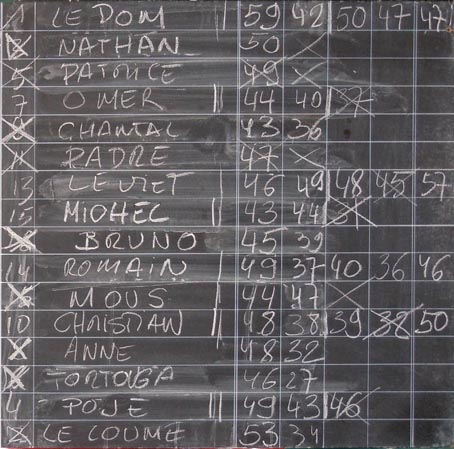 1 LE DOM || 59 42 50 47 47
NATHAN 50
5 PATRICE 49
7 OMER || 44 40 37
CHANTAL 43 36
PADRE 47
13 LE VIET | 46 49 48 45 57
15 MICHEL | 43 44
BRUNO 45 39
14 ROMAIN | 49 37 40 36 46
MOUS 44 47
10 CHRISTIAN | 48 38 39 38 50
ANNE 48 32
TORTOUGA 46 27
4 POJE || 49 43 46
LE LOUME 53 34